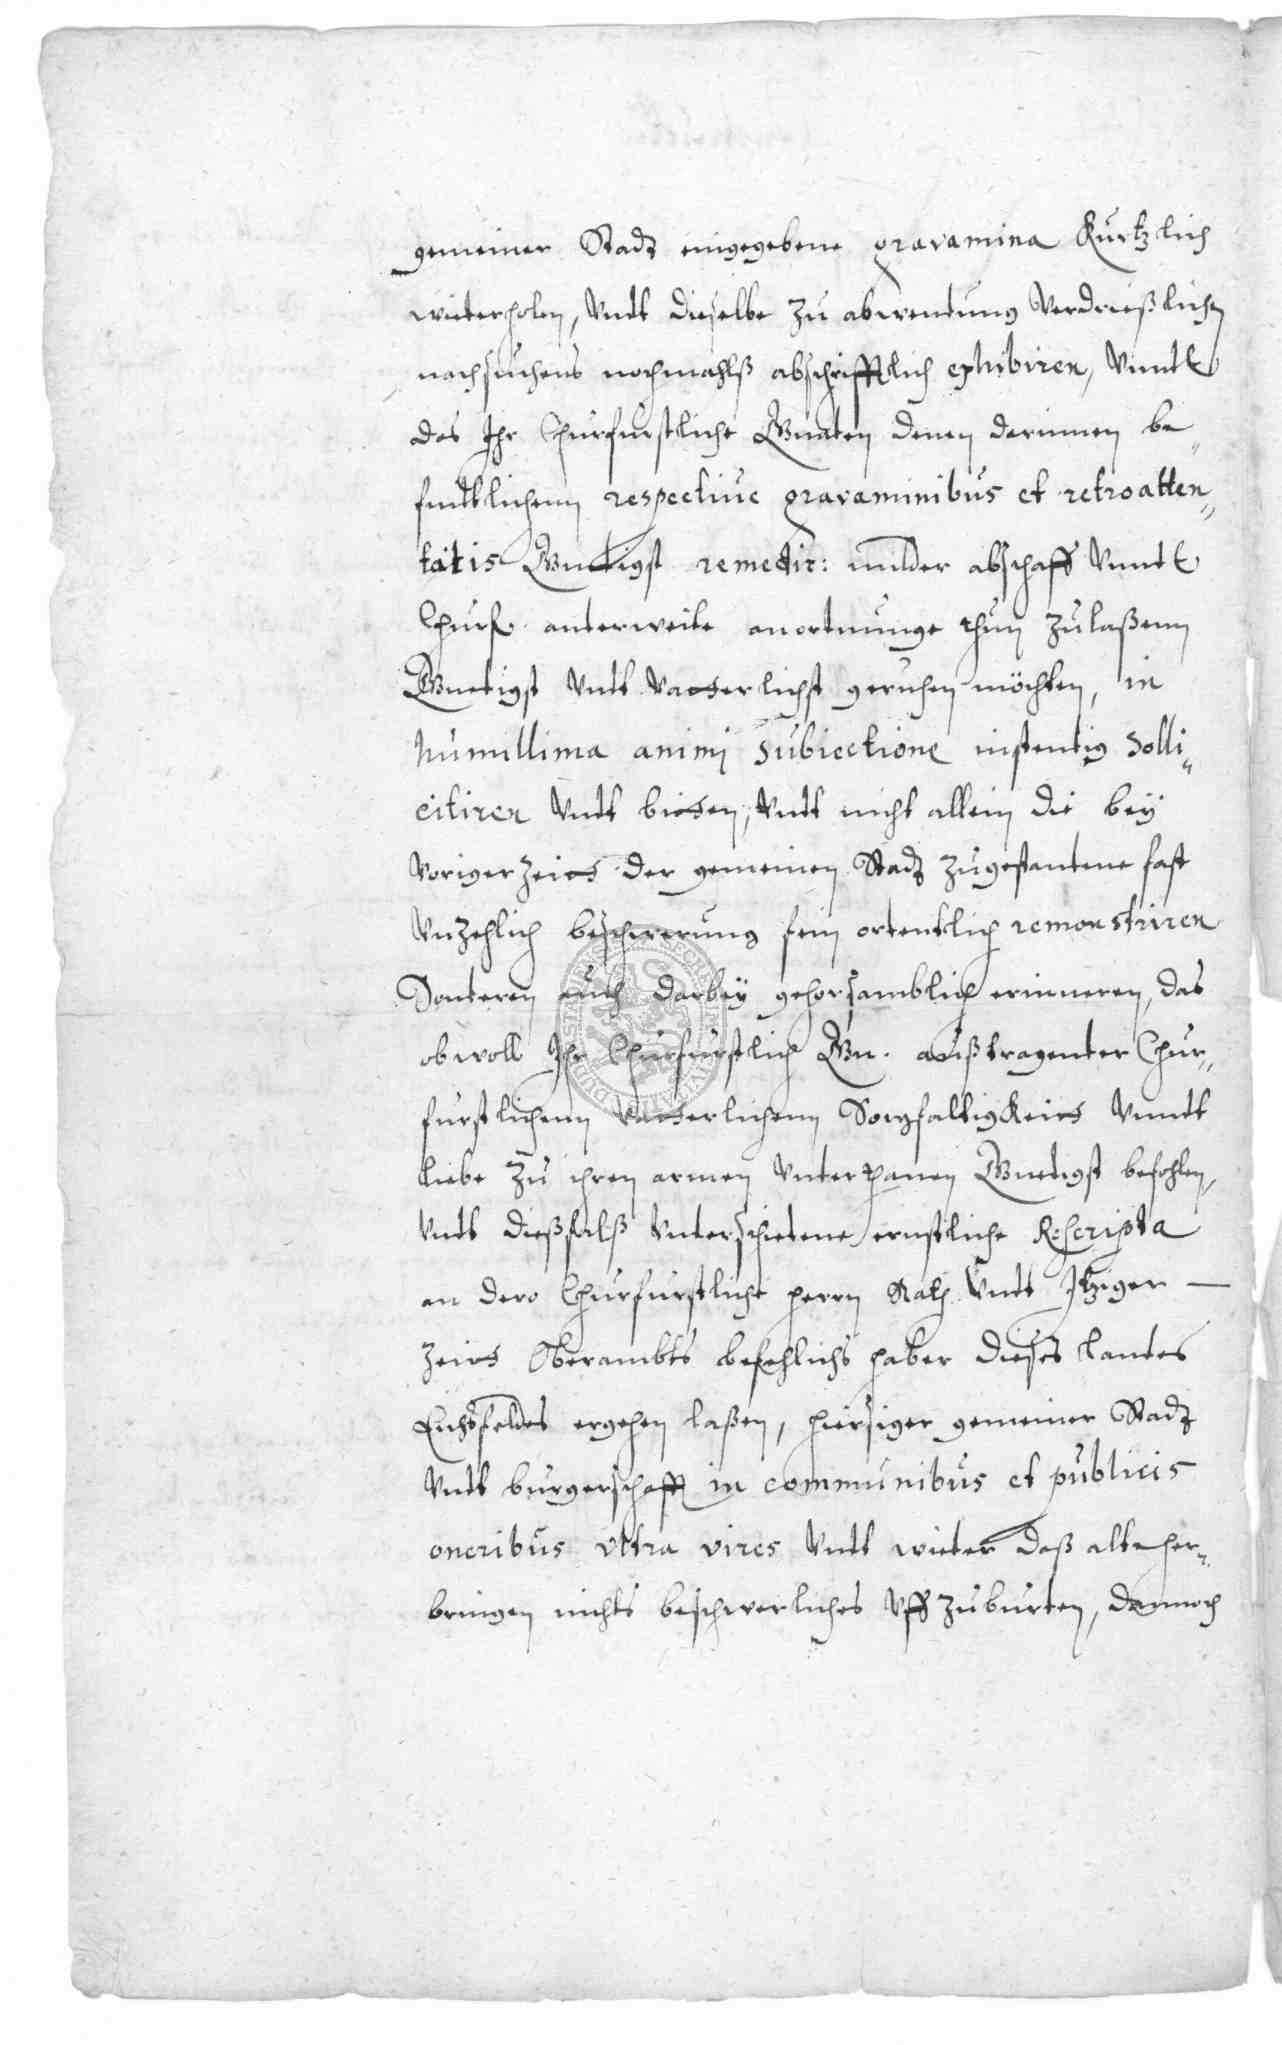 gemeiner Stadt eingegebene gravamina Kurtzlich
wieterholen, Vndt dieselbe zu abwendtung Verdrießlichen
nachsuchens nochmahlß abschrifftlich exhibiren, Vnndt
das Ihr Churfurstliche Gnaden denen darinnen be„
findtlichenn respectiue gravaminibus et retroatten„
tatis Gnedigst remedir: milder abschaff Vnndt
Churf. anderweite anortnunge thun zulaßenn
Gnedigst Vndt Vatterlichst geruhen möchten, in
humillima animi subiectione instendig solli„
citiren Vndt bitten, Vndt nicht allein die beÿ
Voriger Zeitt der gemeinen Stadt zugestandtene fast
Vnzehlich beschwerung fein ordentlich remonstriren
Sonderen auch darbeÿ gehorsamblich erinneren, das
obwoll Ihr Churfurstlich Gn. außtragenter Chur„
furstlichenn Vatterlichenn Sorgfaltigkeitt Vnndt
liebe zu ihren armen Vnterthanen Gnedigst befohlen,
Vndt dießfalß Vnterschiedene ernstliche Rescripta
an dero Churfurstliche herrn Rath Vndt Itziger
Zeitt Oberambts befehlichshaber dieses landes
Eichsfeldes ergehen laßen, hiersiger gemeiner Stadt
Vndt burgerschafft in communibus et publicis
oneribus vltra vires Vndt wieter daß alte her„
bringen nichts beschwerliches Vffzuburten, dannoch